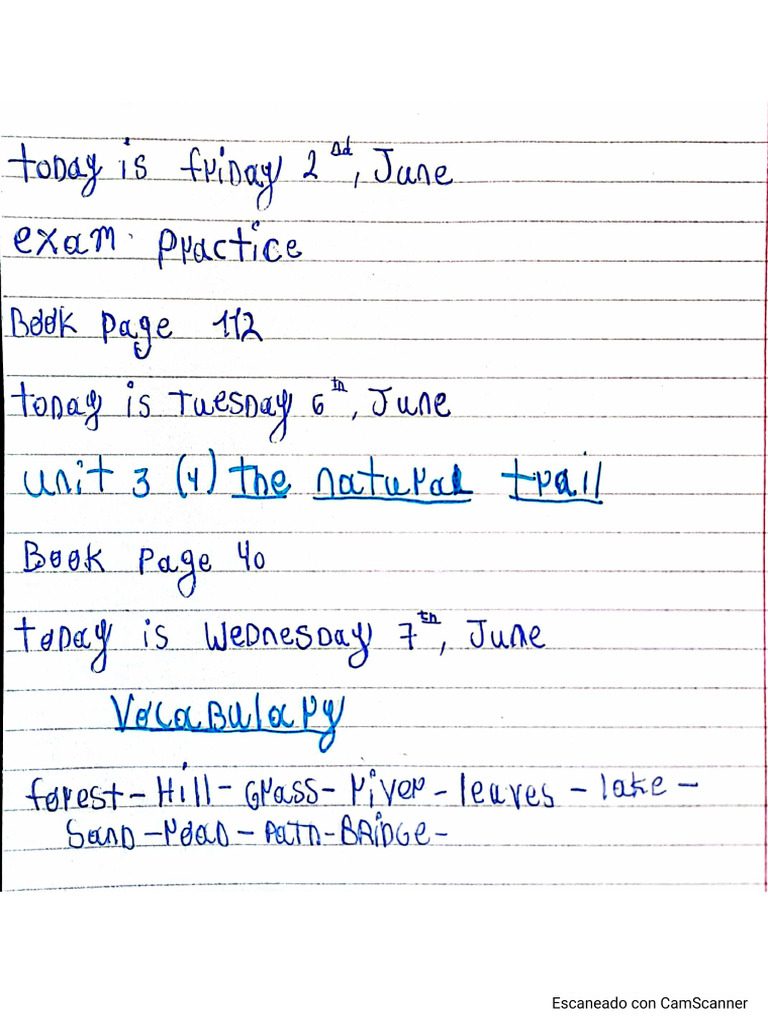 today is friday 2nd, June
exam. practice
Book page 112
today is Tuesday 6th, June
unit 3 (4) the natural trail
Book page 40
today is Wednesday 7th, June
Vocabulary
forest - Hill - Grass - river - leaves - lake -
Sand - road - path - BRidge -
Escaneado con CamScanner